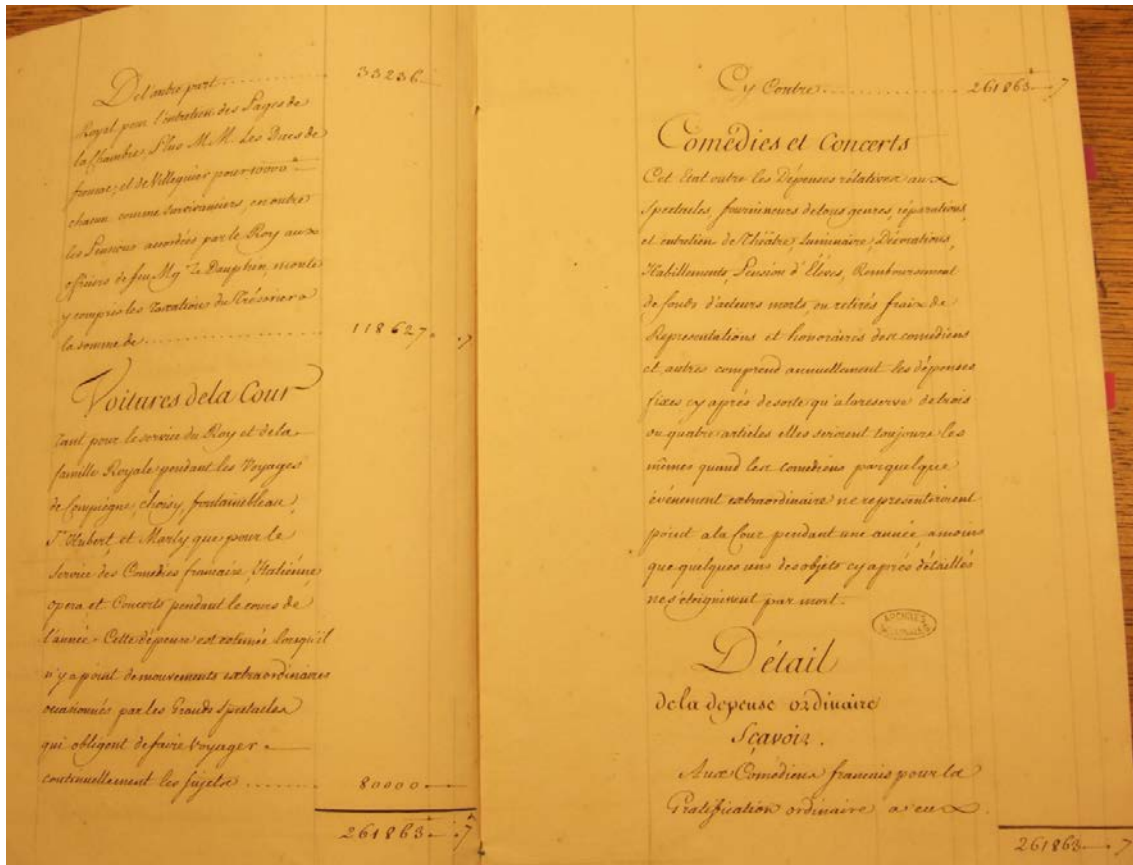 De l'autre part .......... 33236
Royal pour l'entretien des Pages de
la Chambre, Plus M.M. Les Ducs de
fronsac, et de Villequier pour 10000 ᵗᵗ
chacun comme survivanciers, en outre
les Pensions accordées par le Roy aux
officiers de feu Mg.r Le Dauphin, monte
y compris les taxations du Trésorier a
la somme de .......... 118627 . . 7
Voitures de la Cour
tant pour le service du Roy et de la
famille Royale pendant les Voyages
de Compiègne, choisy, fontainebleau,
St Hubert, et Marly que pour le
service des Comédies francaise, Italiénne,
opera et Concerts pendant le cours de
l'année. Cette dépense est estimée lorsqu'il
n'y a point de mouvements extraordinaires
occasionnés par les Grands Spectacles
qui obligent de faire voyager
continuellement les sujets .......... 80000
261863 . . 7
Cy Contre .......... 261863 . . 7
Comédies et Concerts
Cet Etat outre les Dépenses rélatives aux
spectacles, fournisseurs de tous genres, réparations,
et entretien de Théâtre, Luminaire, Décorations,
Habillements, Pension d'Élèves, Remboursement
de fonds d'acteurs morts, ou retirés fraix de
Représentations et honoraires des comédiens
et autres comprend annuellement les dépenses
fixes cy après de sorte qu'a la reserve de trois
ou quatre articles elles seroient toujours les
mêmes quand les comédiens par quelque
événement extraordinaire ne representeroient
point a la Cour pendant une année, a moins
que quelques uns des objets cy après détaillés
ne s'éteignissent par mort.
ARCHIVES
NATIONALES
Détail
de la depense ordinaire
Sçavoir.
Aux Comédiens francais pour la
Gratification ordinaire a eux
261863 . . 7